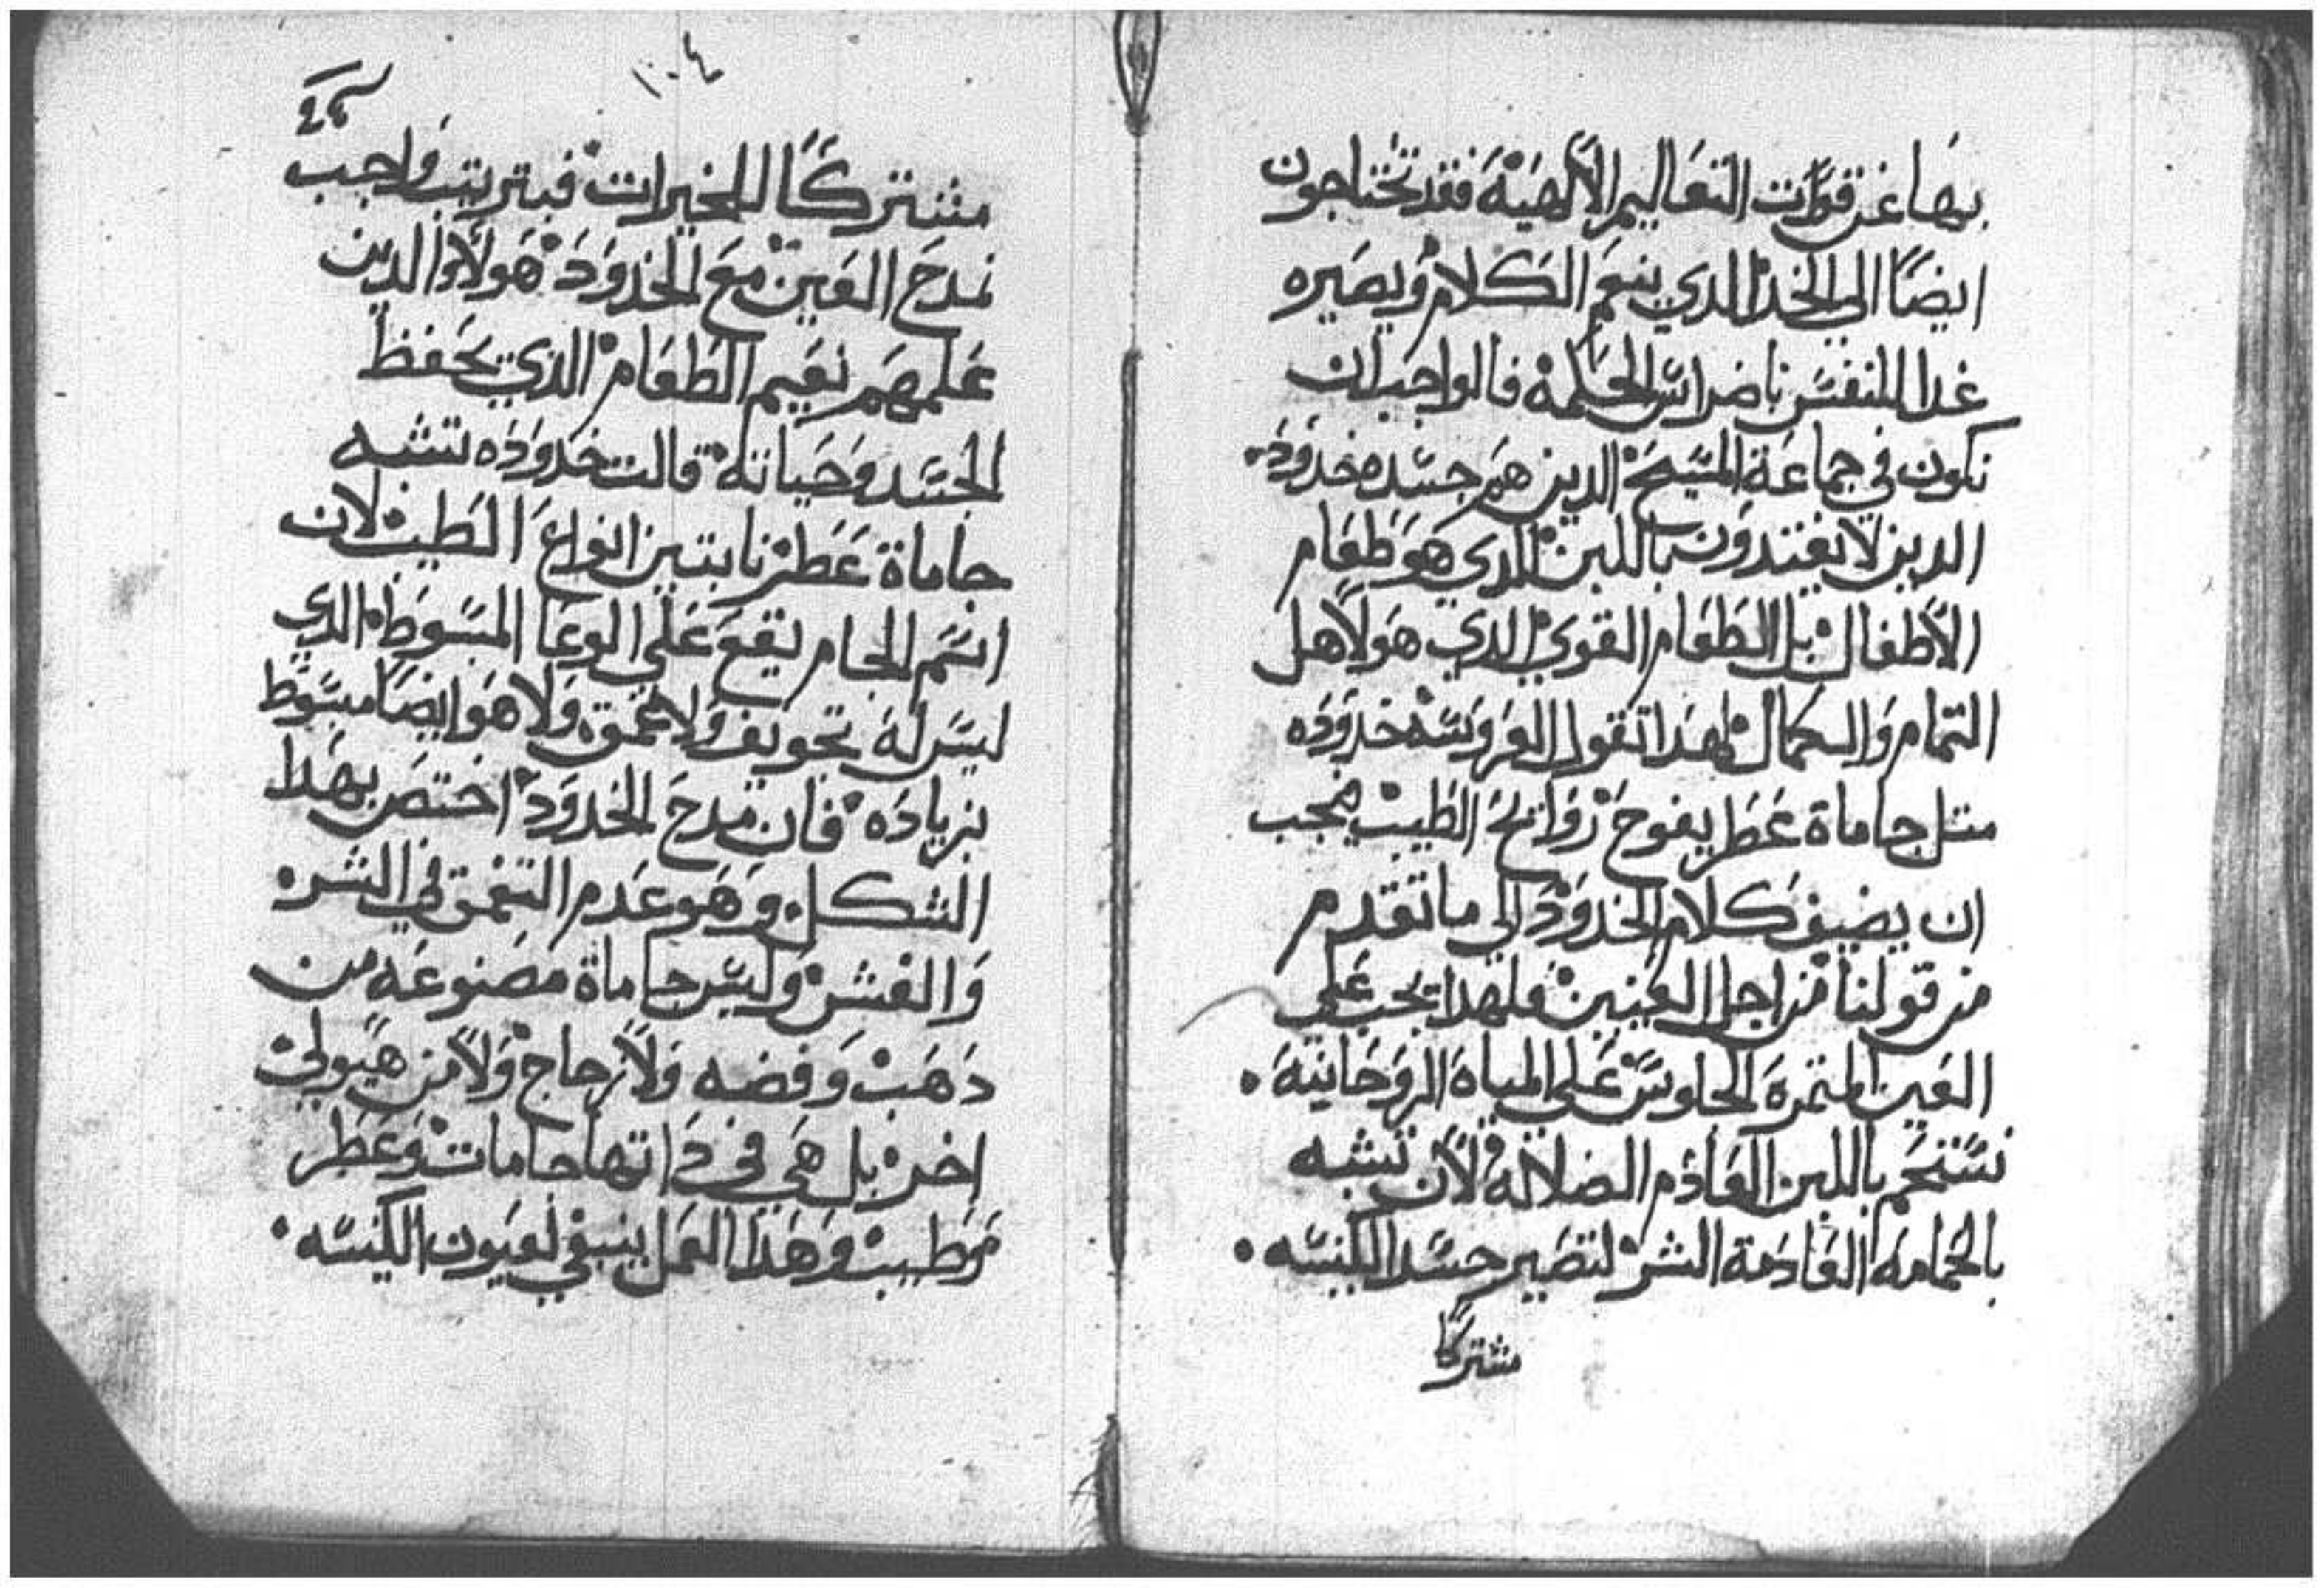 بها عن قوات التعاليم الالهية فقد تحتاجون
ايضًا الي الخد الدي ينعم الكلام ويصيره
غدا للنفس باضراس الحكمة فالواجب ان
تكون في جماعة المسيح الدين هم جسده خدود
الدين لا يغتدون باللبن الدي هو طعام
الاطفال بل الطعام القوي الدي هو لاهل
التمام والكمال لهدا تقول العروسه خدوده
متل جاماة عطر يفوح روايح الطيب فيجب
ان يضيف كلام الخدود الي ما تقدم
من قولنا من اجل العينين فلهدا يجب علي
العين المتمرة الجلوس علي المياة الروحانية
تستحم باللبن العادم الضلالة لان تشبه
بالحمامة العادمة الشر لتصير جسد الكنيسه
مشتركًا
١٠٤
مشتركًا للخيرات فبترتيب واجب
نمدح العين مع الخدود هولاوا الدين
علمهم نعيم الطعام الدي يحفظ
الجسد وحياته قالت خدوده تشبه
جاماة عطر نابتين انواع الطيب لان
اسم الجام يقع علي الوعا المبسوط الدي
ليس له تجويف ولا عمق ولا هو ايضا مبسوط
بزياده فان مدح الخدود اختص بهدا
الشكل وهو عدم التعمق في الشره
والغش وليس جاماة مصنوعه من
دهب وفضه ولا زجاج ولا من هيولي
اخر بل هي في داتها جامات وعطر
وطيب وهدا العمل ينبغي لعيون الكنيسه